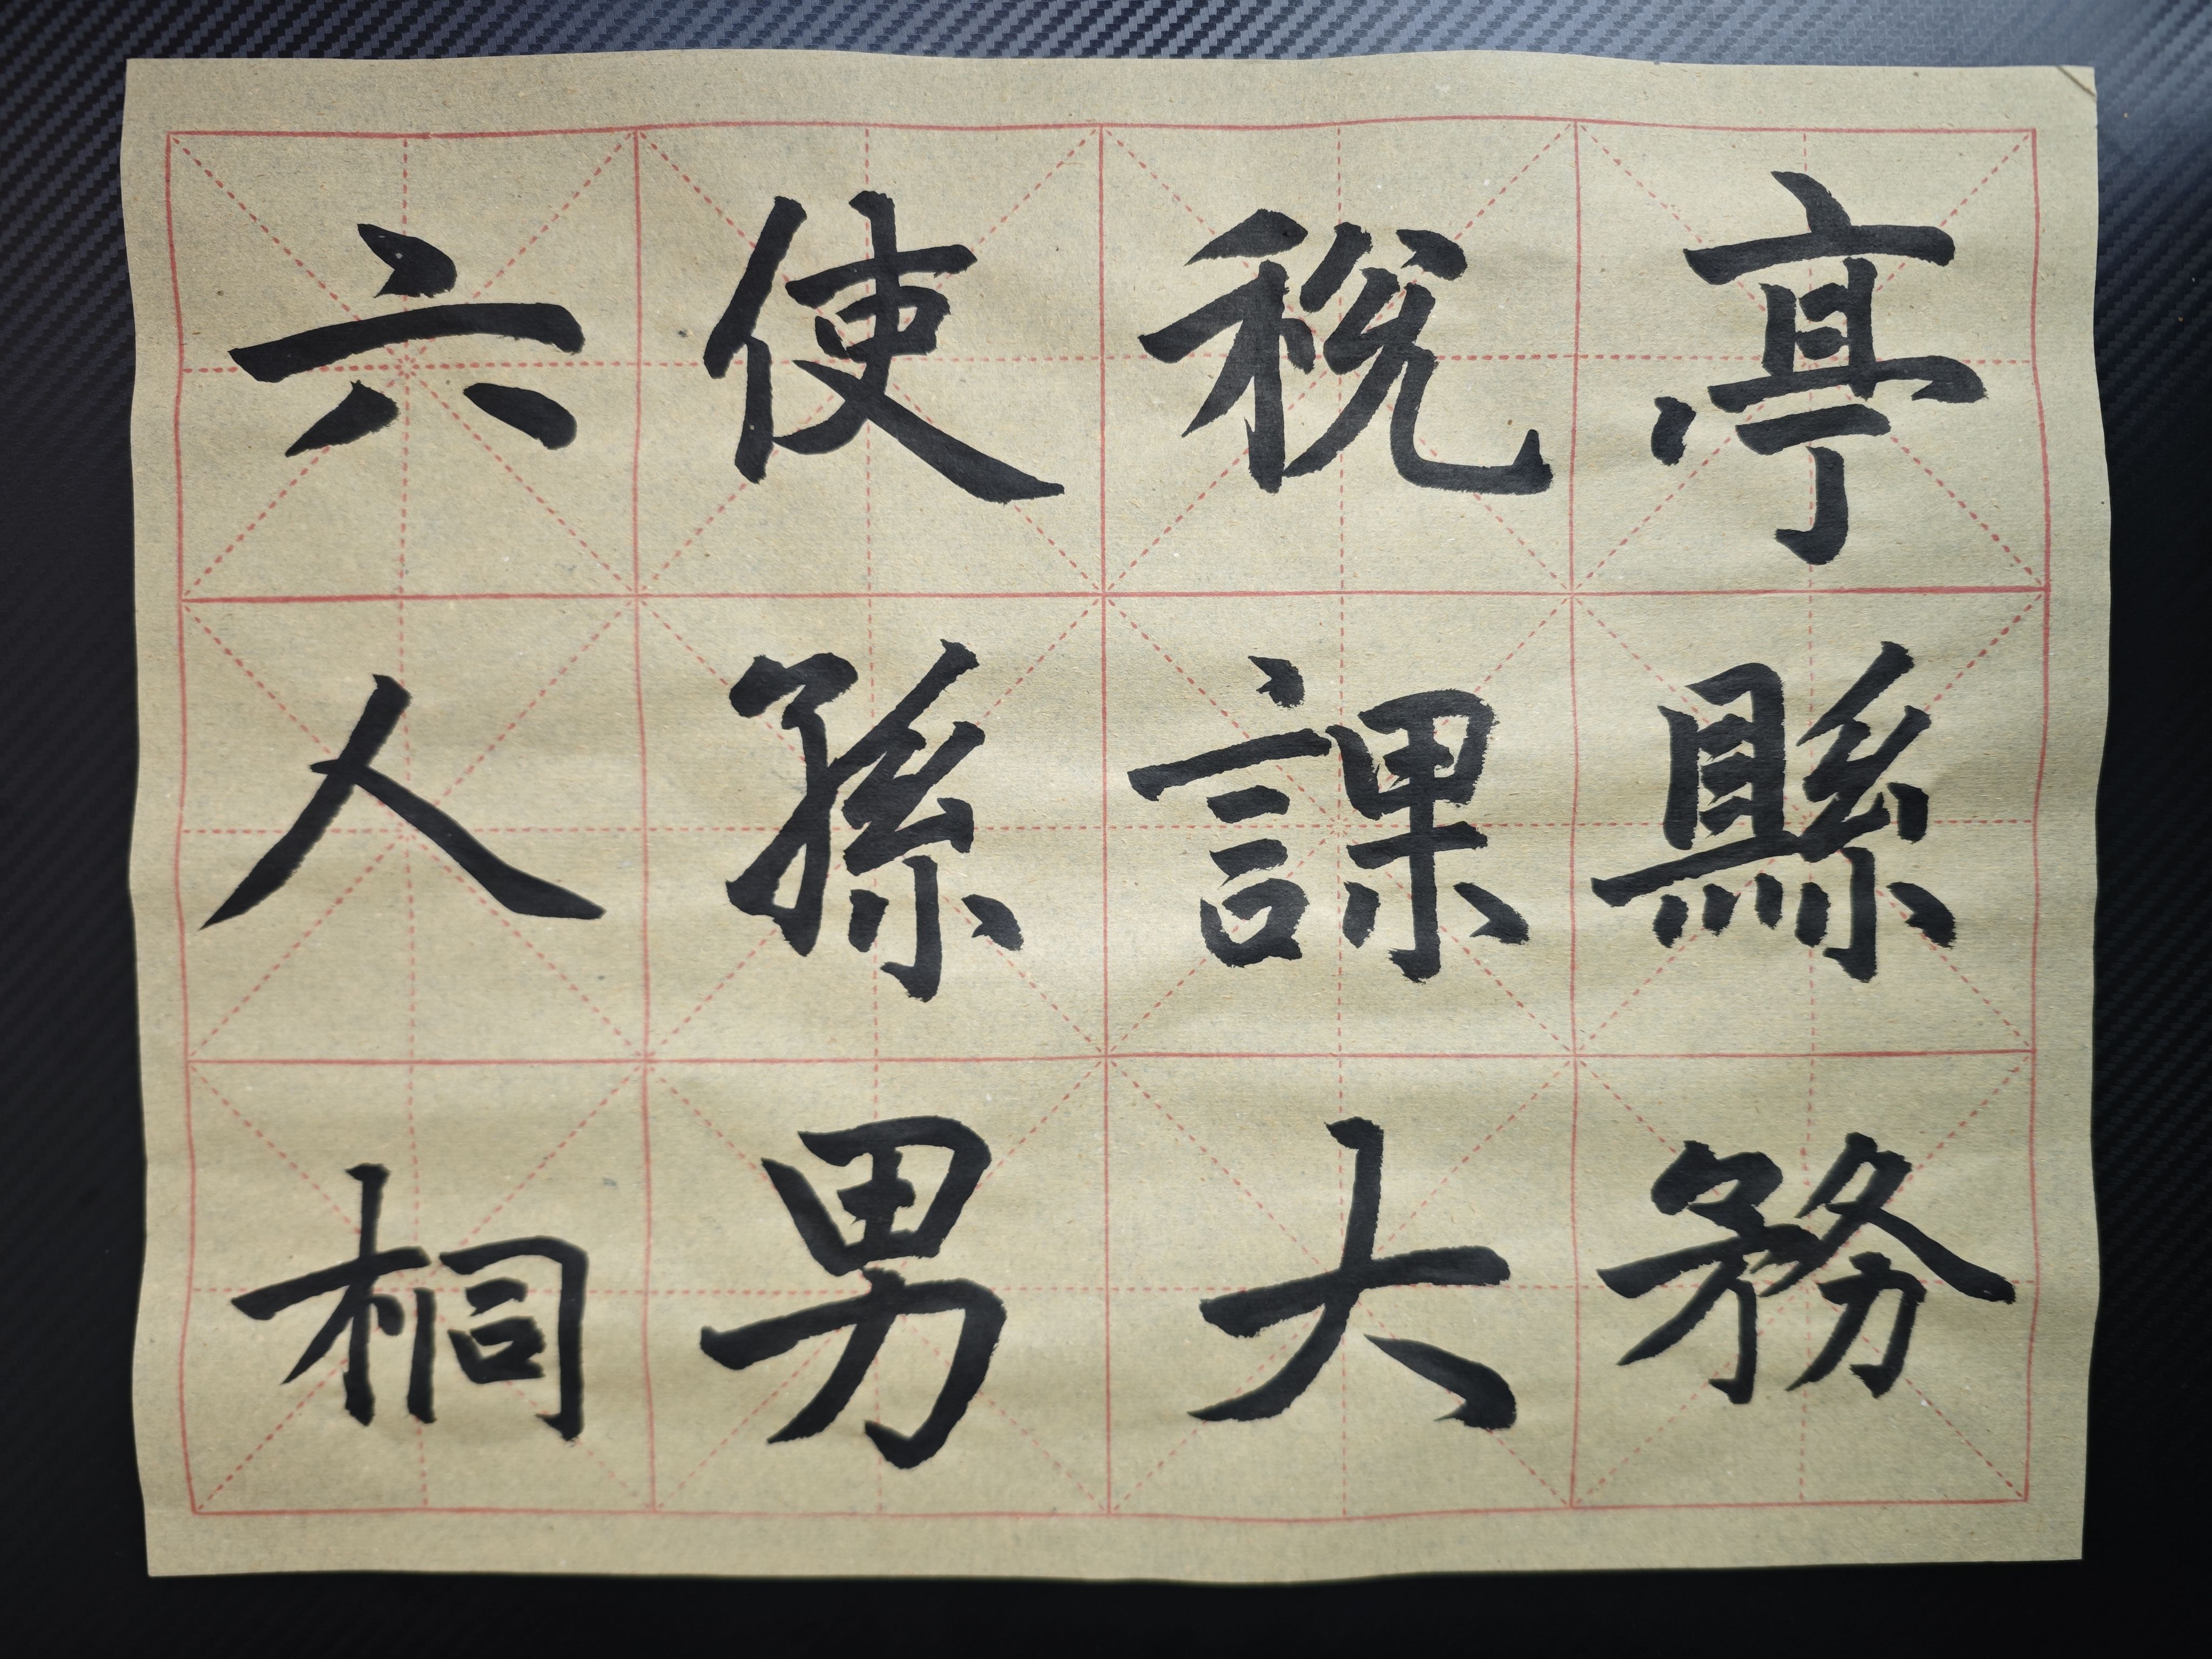 亭縣務
稅課大
使孫男
六人桐